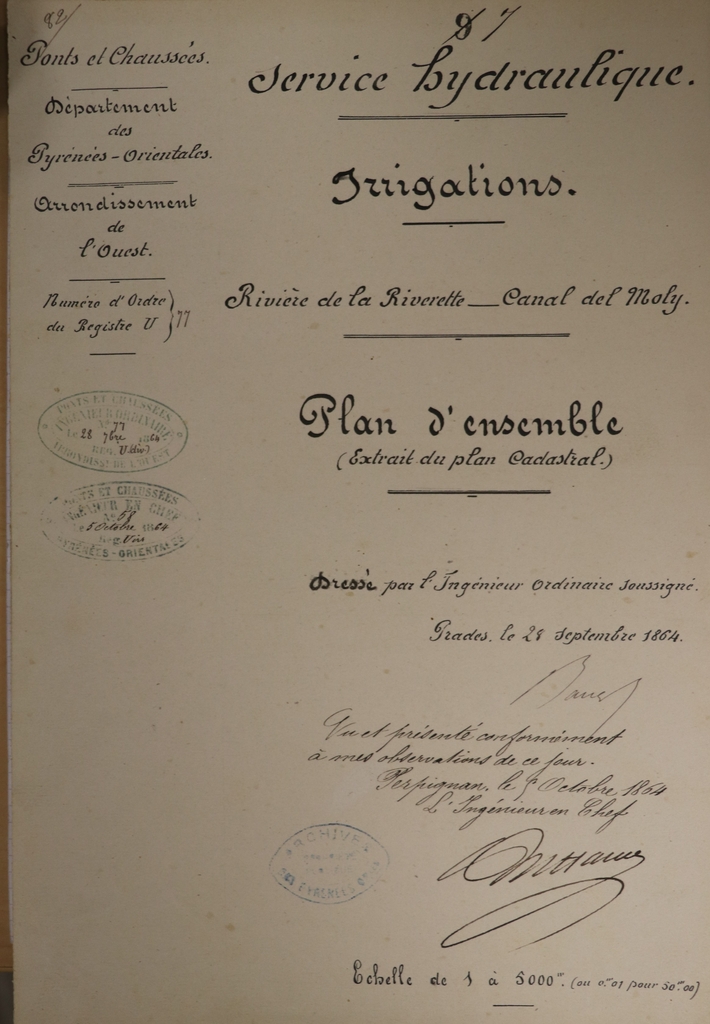 82
Ponts et Chaussées.
Département
des
Pyrénées-Orientales.
Arrondissement
de
l'Ouest.
Numéro d'Ordre
du Registre U } 77
PONTS ET CHAUSSÉES
INGÉNIEUR ORDINAIRE
N° 77
Le 28 7bre 1864
REG. U
ARRONDISST DE L'OUEST
PONTS ET CHAUSSÉES
INGÉNIEUR EN CHEF
N° 58
5 Octobre 1864
Reg.
PYRÉNÉES-ORIENTALES
7
Service hydraulique.
Irrigations.
Rivière de la Riverette — Canal del Moly.
Plan d'ensemble
(Extrait du plan Cadastral.)
Dressé par l'Ingénieur Ordinaire soussigné.
Prades, le 28 Septembre 1864.
Vu et présenté conformément
à mes observations de ce jour.
Perpignan, le 5 Octobre 1864
L'Ingénieur en Chef
ARCHIVES
DES PYRÉNÉES
Echelle de 1 à 5000m. (ou 0.m01 pour 50.m00)